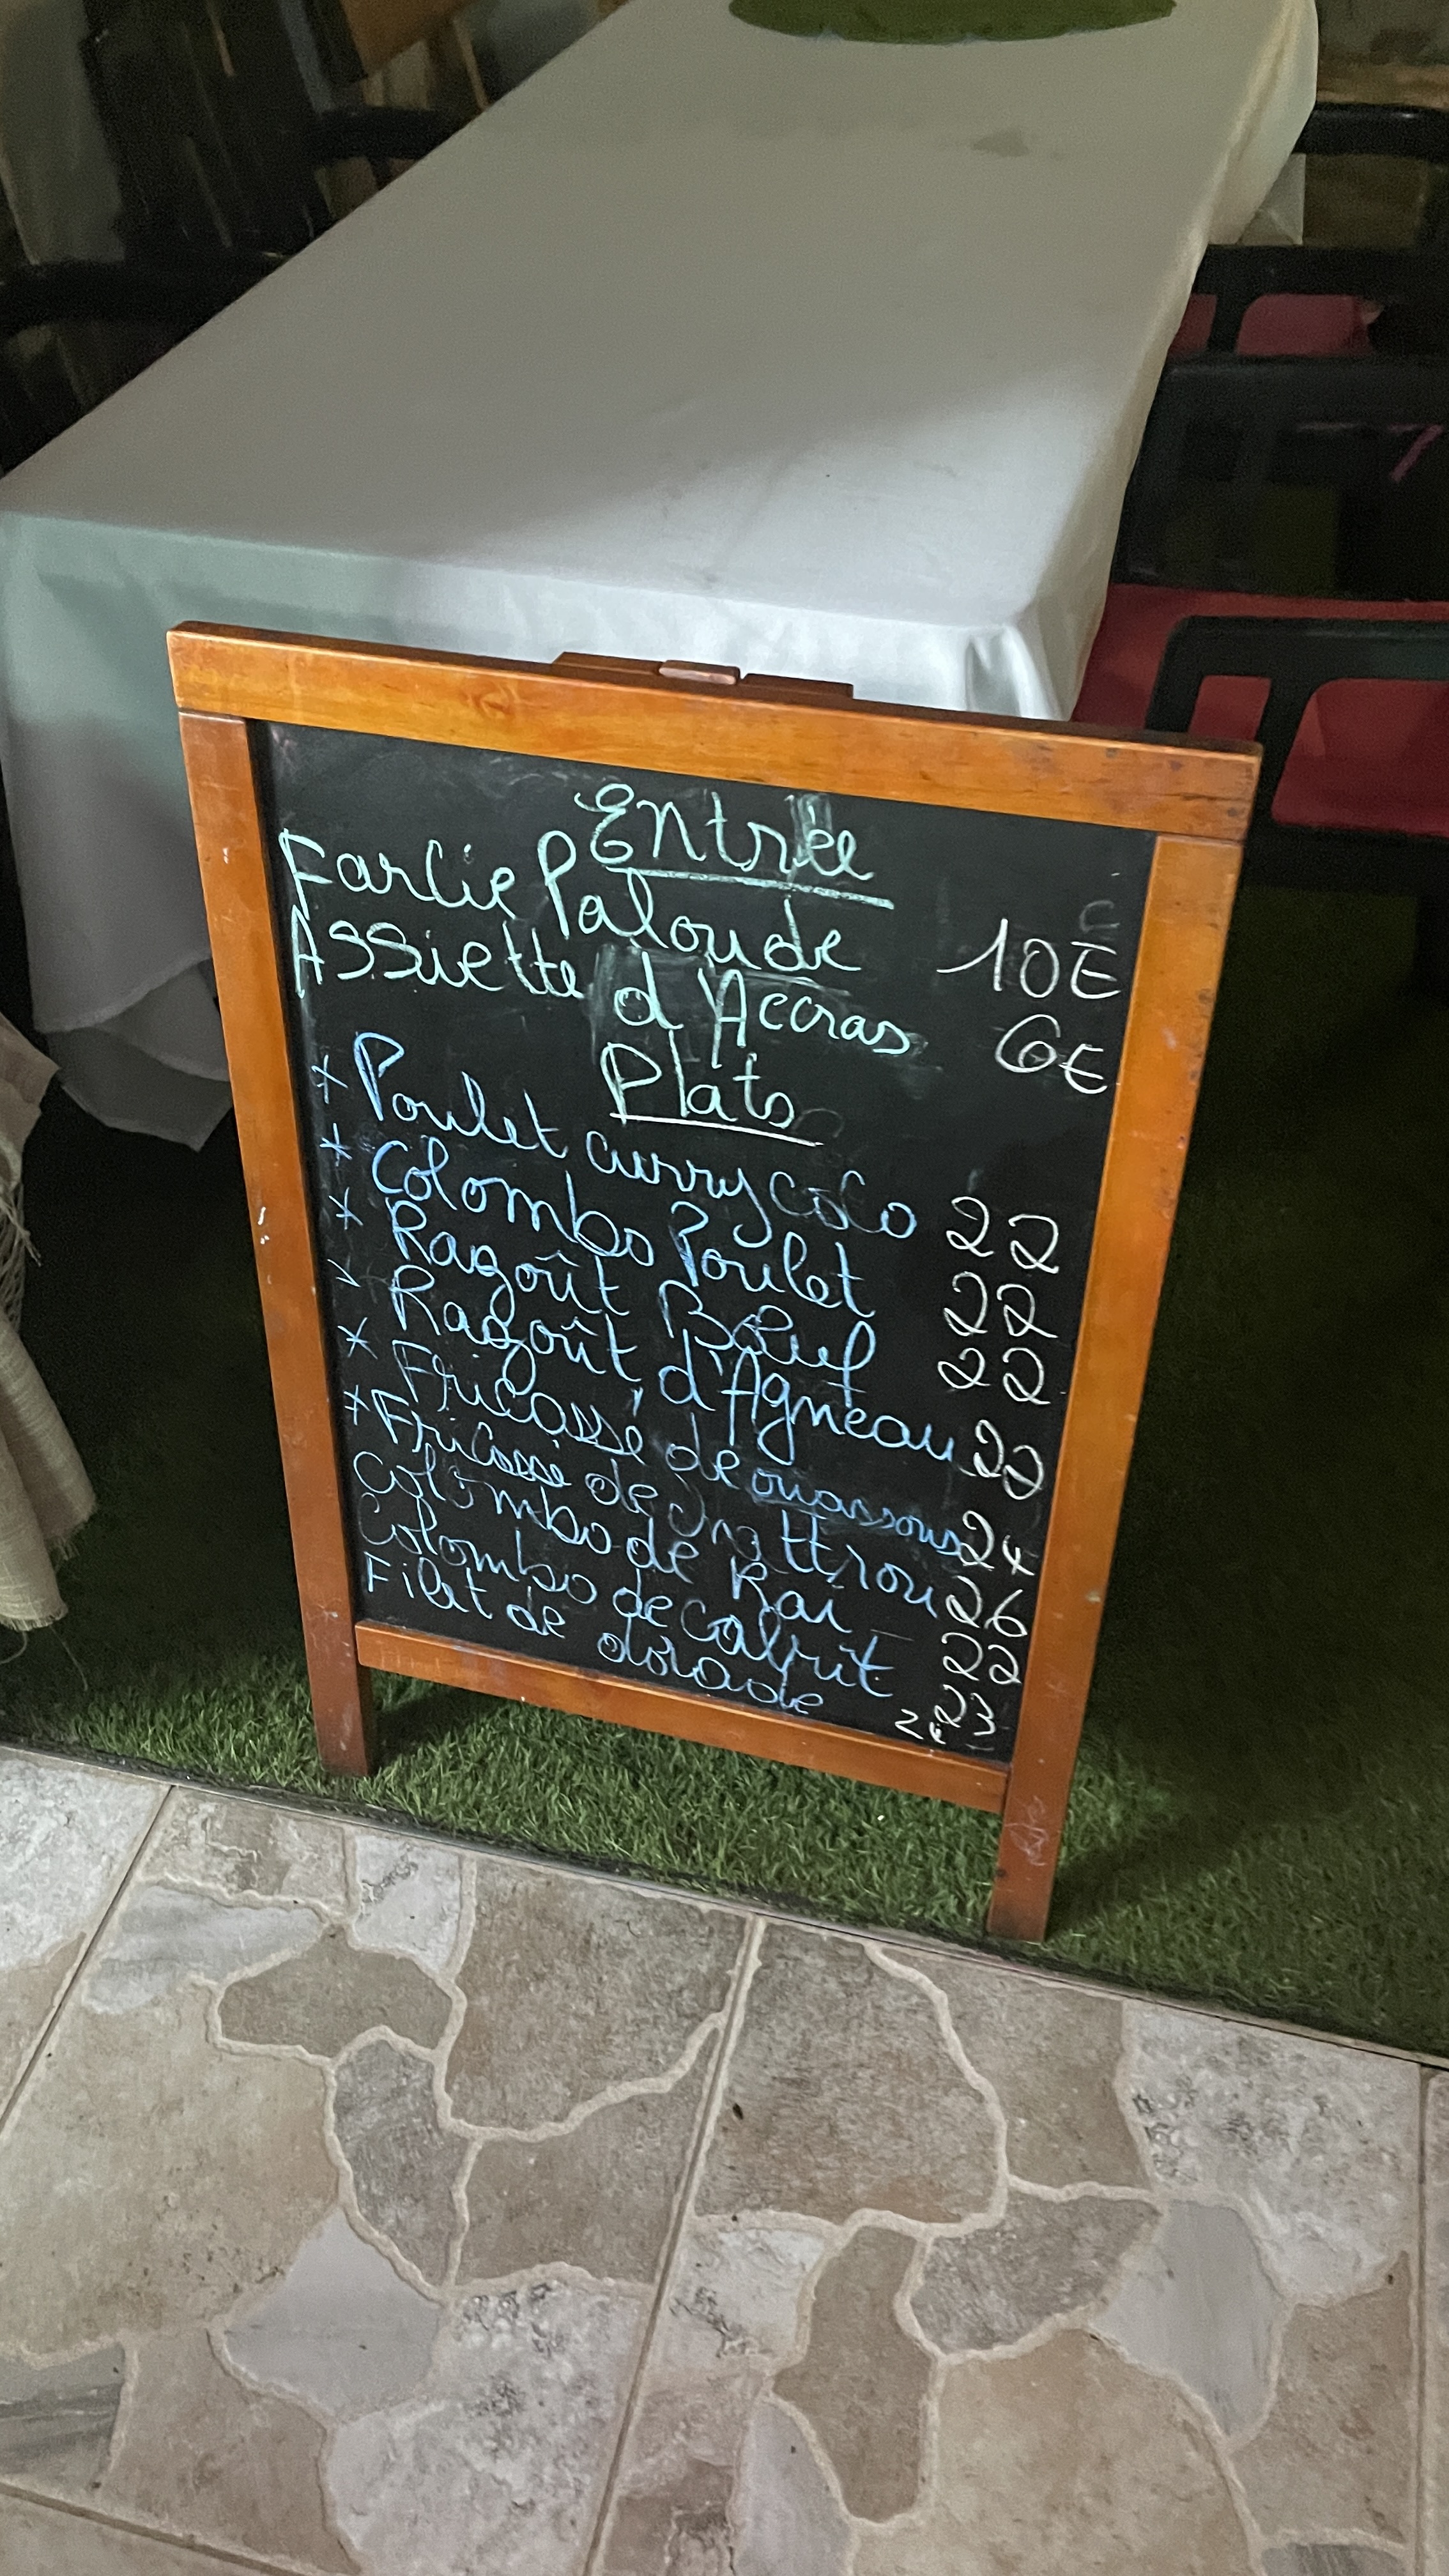 Entrée
Farcie Palourde 10€
Assiette d'Accras 6€
Plats
* Poulet curry coco 22
* Colombo Poulet 22
* Ragoût Bœuf 22
Ragoût d'Agneau 20
* Fricassé de ouassous 24
* Fricassé de
Colombo de Rai
Colombo de cabrit
Filet de dorade